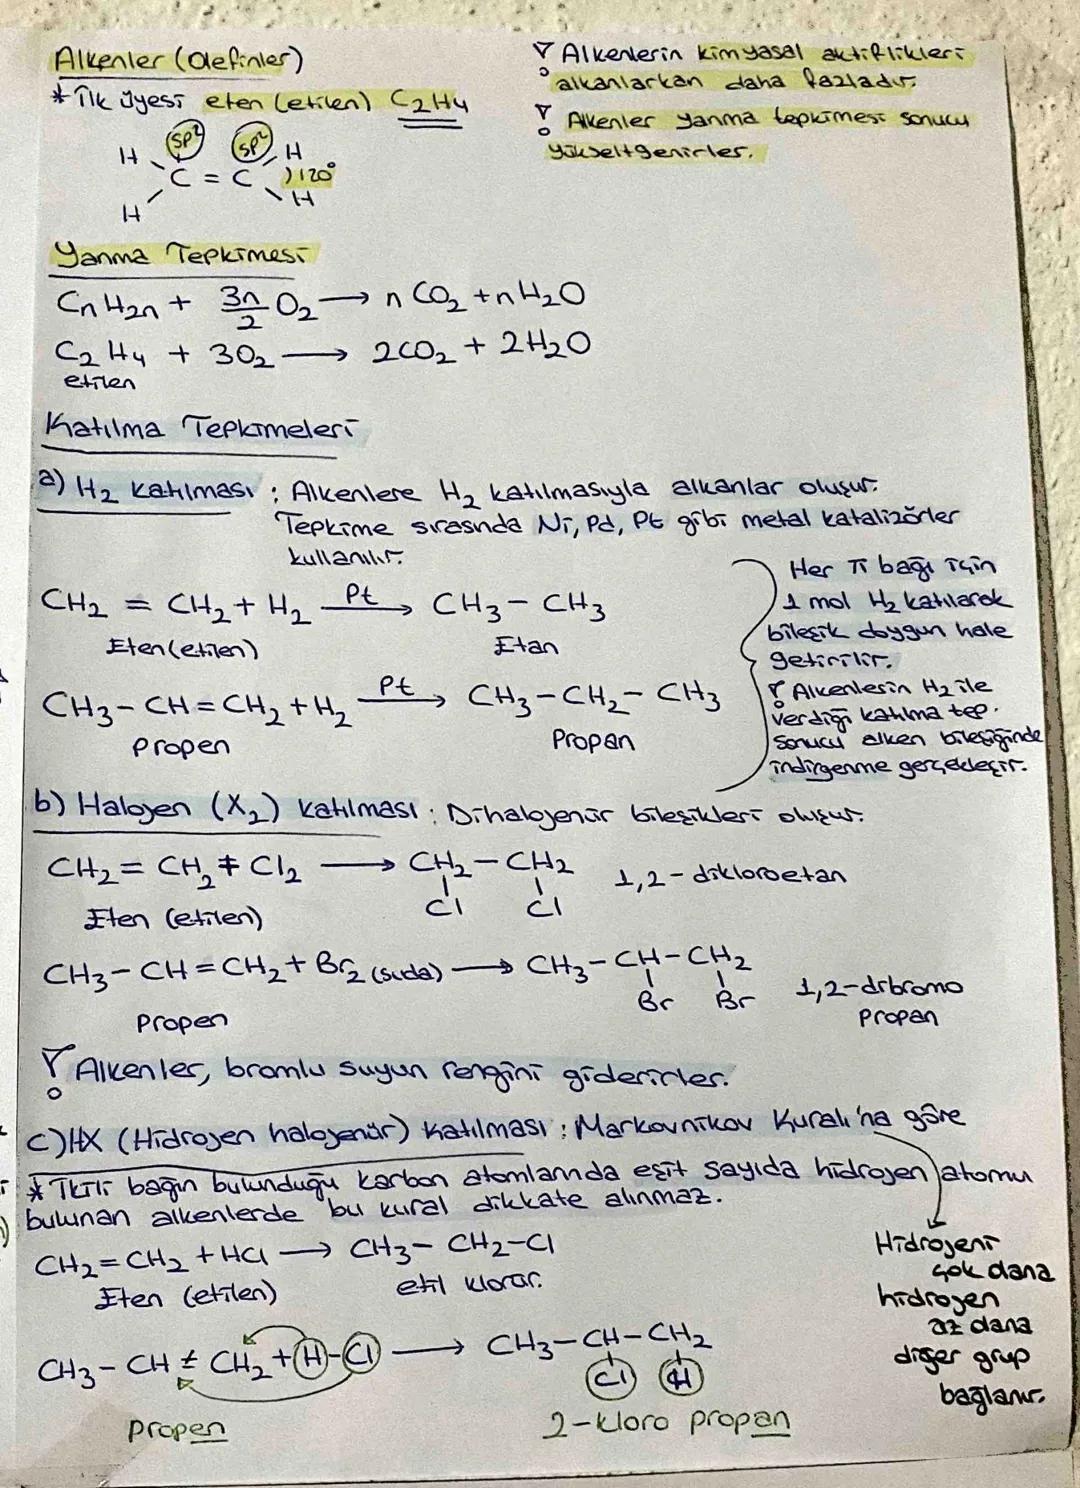 Alkenler (Olefinler)
* İlk üyesi eten (etilen) C₂H₄
sp² sp²
H H
C = C )120°
H H
! Alkenlerin kimyasal aktiflikleri
alkanlarkan daha fazladır.
! Alkenler yanma tepkimesi sonucu
yükseltgenirler.
Yanma Tepkimesi
CnH2n + 3n/2 O₂ → n CO₂ + n H₂O
C₂H₄ + 3O₂ → 2CO₂ + 2H₂O
etilen
Katılma Tepkimeleri
a) H₂ katılması : Alkenlere H₂ katılmasıyla alkanlar oluşur.
Tepkime sırasında Ni, Pd, Pt gibi metal katalizörler
kullanılır.
CH₂ = CH₂ + H₂ Pt→ CH₃ – CH₃
Eten (etilen) Etan
CH₃ – CH = CH₂ + H₂ Pt→ CH₃ – CH₂ – CH₃
Propen Propan
Her π bağı için
1 mol H₂ katılarak
bileşik doygun hale
getirilir.
! Alkenlerin H₂ ile
verdiği katılma tep.
sonucu alken bileşiğinde
indirgenme gerçekleşir.
b) Halojen (X₂) katılması : Dihalojenür bileşikleri oluşur.
CH₂ = CH₂ + Cl₂ → CH₂ – CH₂ 1,2-dikloroetan
Cl Cl
Eten (etilen)
CH₃ – CH = CH₂ + Br₂ (suda) → CH₃ – CH – CH₂
Br Br 1,2-dibromo
Propen propan
! Alkenler, bromlu suyun rengini giderirler.
c) HX (Hidrojen halojenür) katılması : Markovnikov Kuralı'na göre
* İkili bağın bulunduğu karbon atomlarında eşit sayıda hidrojen atomu
bulunan alkenlerde bu kural dikkate alınmaz.
CH₂ = CH₂ + HCl → CH₃ – CH₂ – Cl
Eten (etilen) etil klorür.
Hidrojeni
çok dana
hidrojen
az dana
diğer grup
bağlanır.
CH₃ – CH = CH₂ + H – Cl → CH₃ – CH – CH₂
Cl H
Propen 2-kloro propan